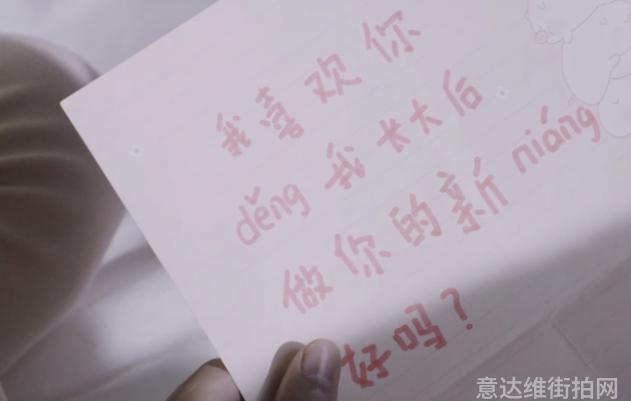 我喜欢你
děng我长大后
做你的新niáng
好吗？
意达维街拍网